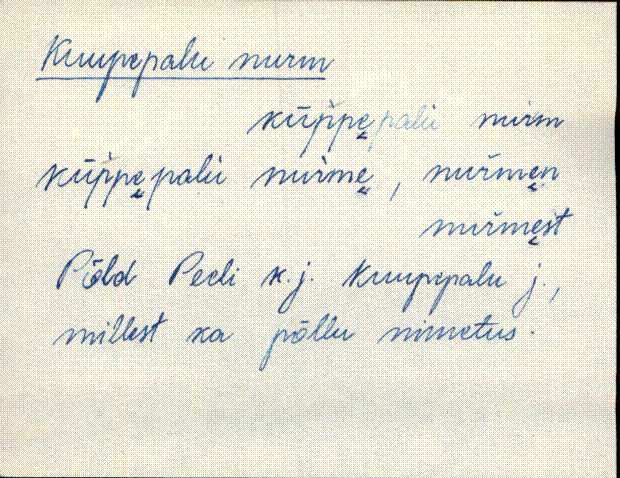 Kuupepalu nurm
kūp̌pe̮palu nurm
kūp̌pe̮palu nurme̮, nuřme̮n
nuřme̮st
Põld Peeli k.j. Kuupepalu j.,
millest ka põllu nimetus.